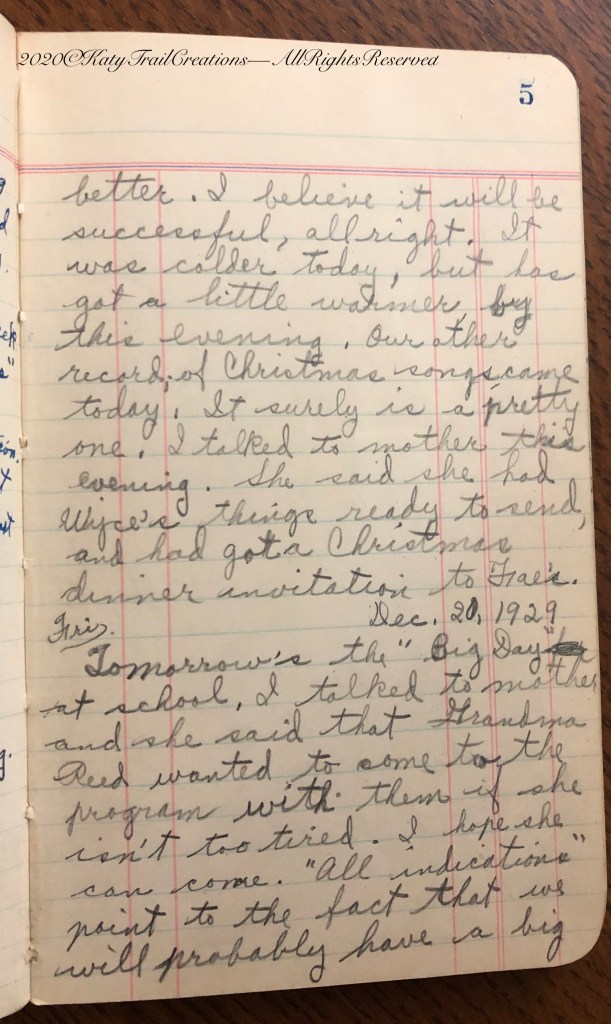 2020©KatyTrailCreations— AllRightsReserved
5
better. I believe it will be
successful, allright. It
was colder today, but has
got a little warmer by
this evening. Our other
record, of Christmas songs, came
today. It surely is a pretty
one. I talked to mother this
evening. She said she had
things ready to send,
and had got a Christmas
dinner invitation to
Dec. 20, 1929
Fri.
Tomorrow's the "Big Day"
at school. I talked to mother
and she said that Grandma
Reed wanted to some to the
program with them if she
isn't too tired. I hope she
can come. "All indications"
point to the fact that we
will probably have a big